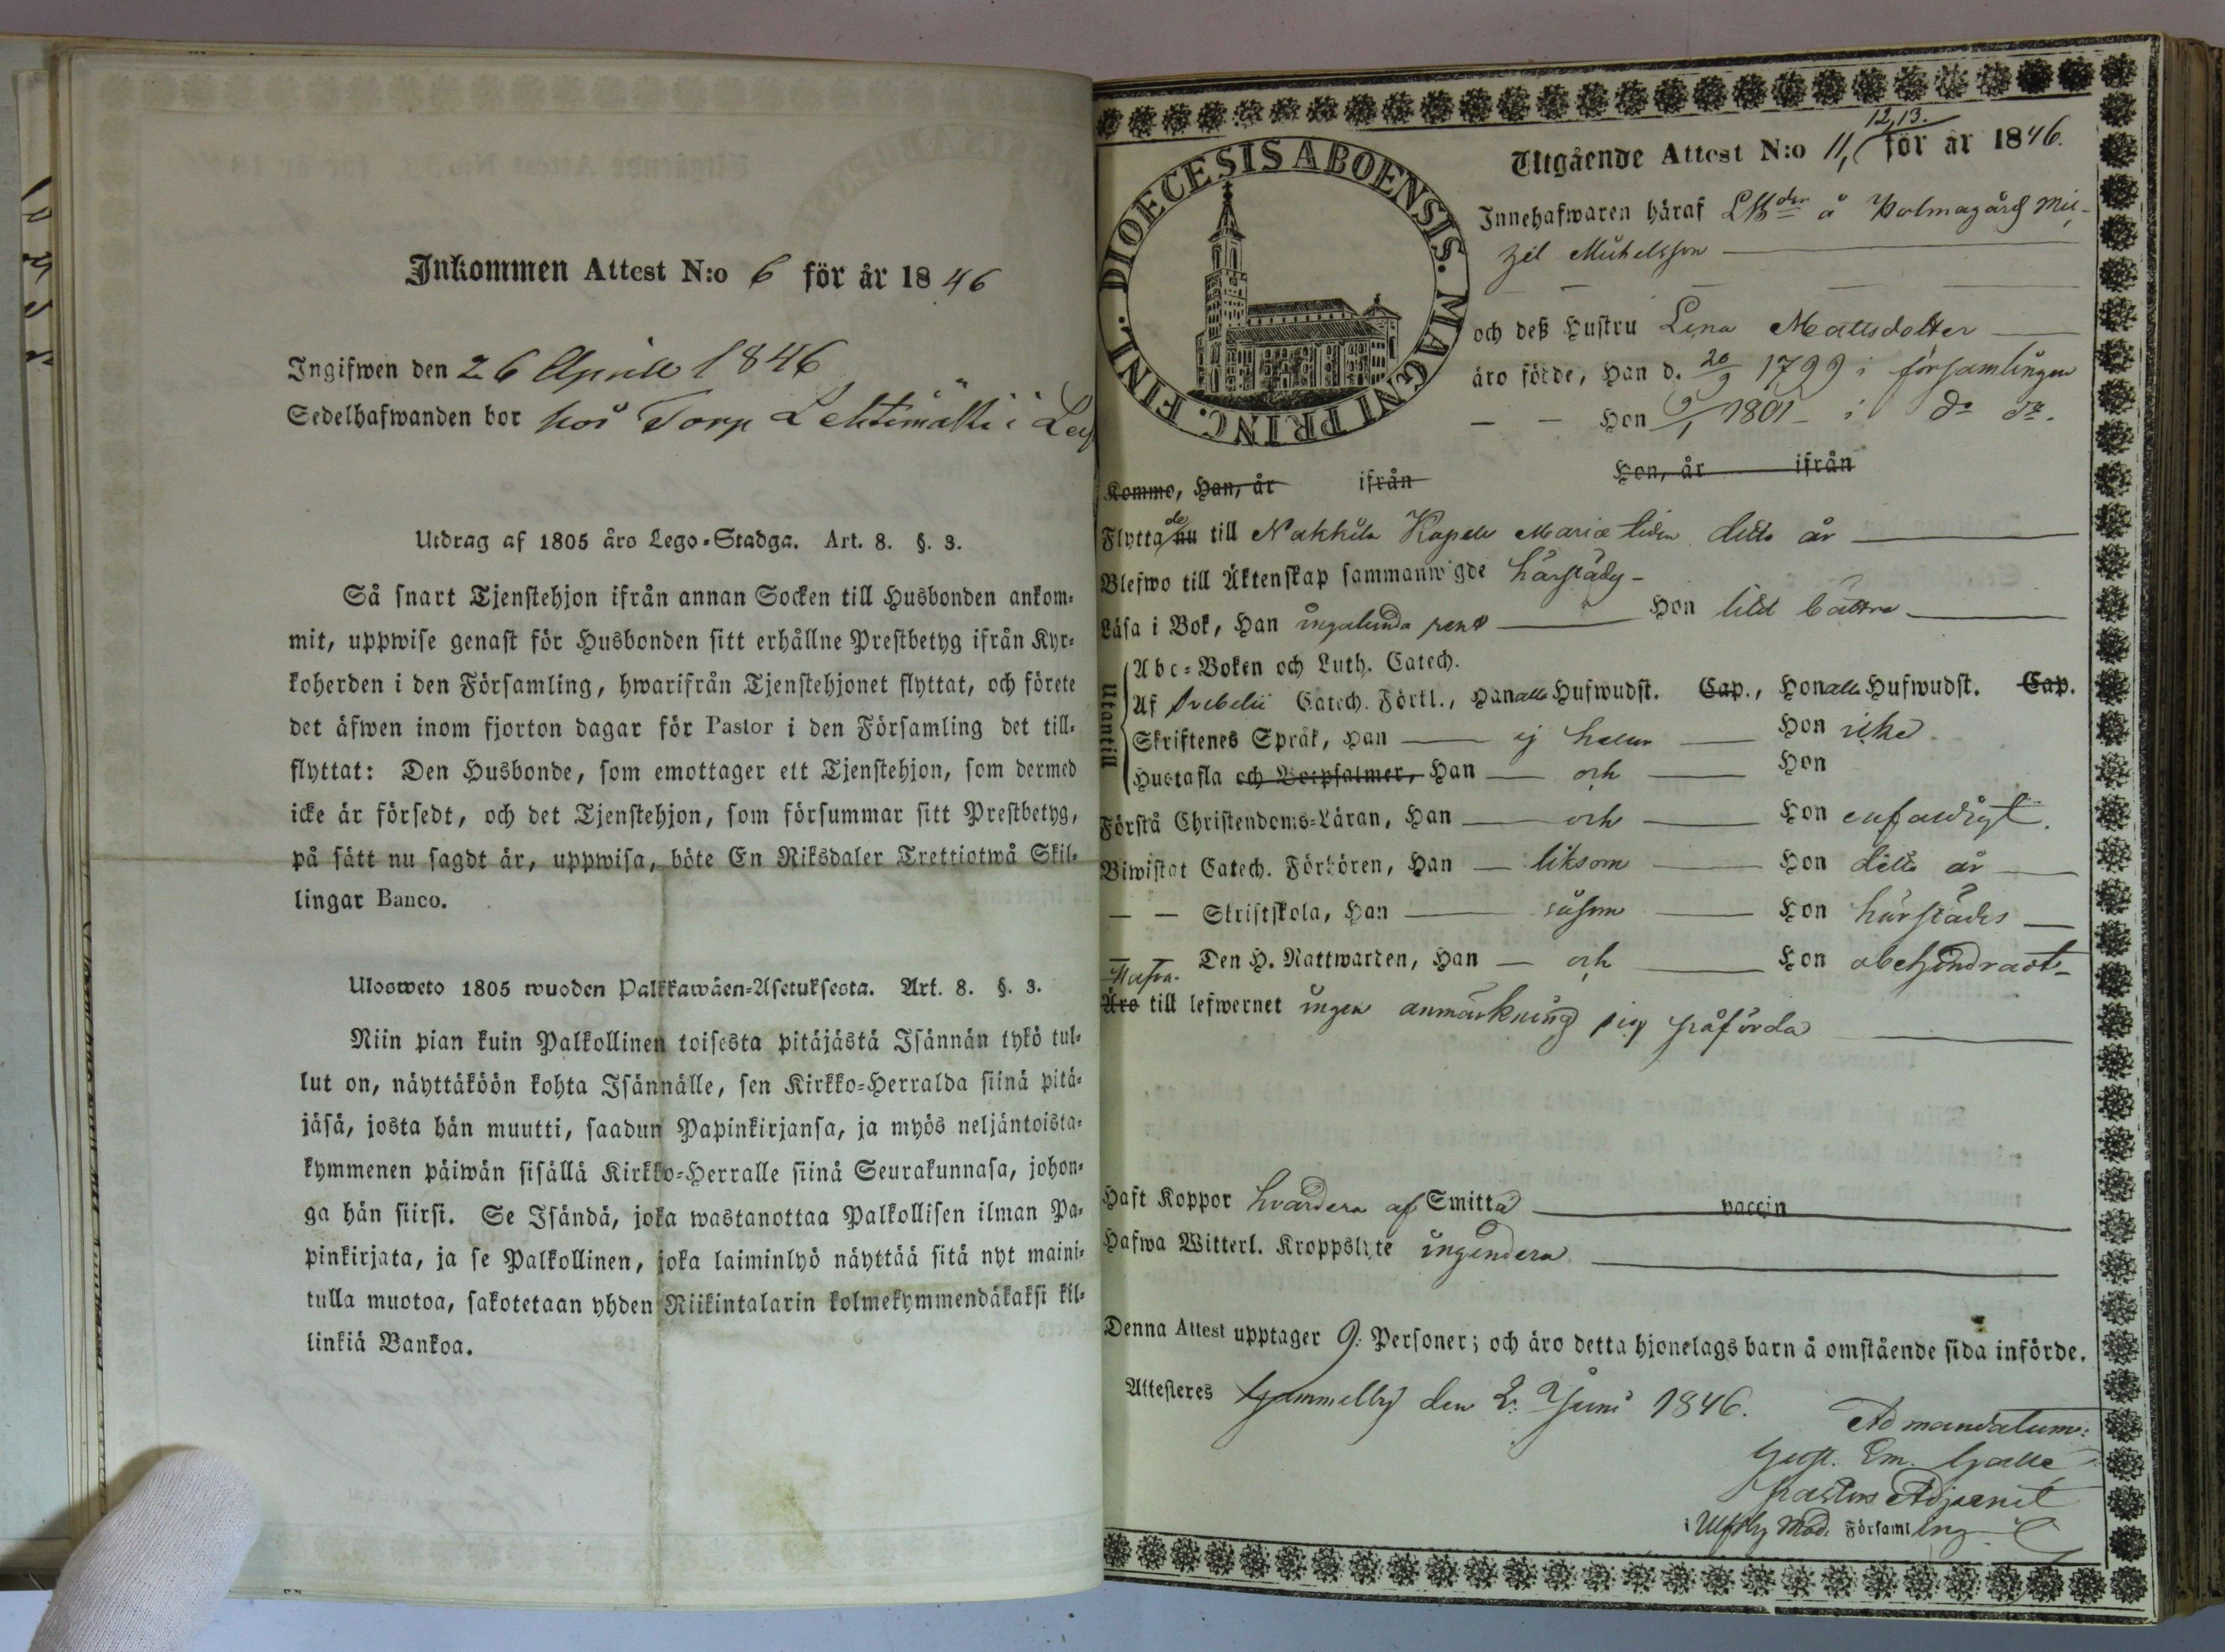 Inkommen Attest N:o 6 för år 1846
Ingifwen den 26 Aprill 1846
Sedelhafwanden bor hos Torp Lehtimäki i
Utdrag af 1805 års Lego-Stadga. Art. 8. §. 3.
Så snart Tjenstehjon ifrån annan Socken till Husbonden ankom-
mit, uppwise genast för Husbonden sitt erhållne Prestbetyg ifrån Kyr-
koherden i den Församling, hwarifrån Tjenstehjonet flyttat, och förete
det äfwen inom fjorton dagar för Pastor i den Församling det till-
flyttat: Den Husbonde, som emottager ett Tjenstehjon, som dermed
icke är försedt, och det Tjenstehjon, som försummar sitt Prestbetyg,
på sätt nu sagdt är, uppwisa, böte En Riksdaler Trettiotwå Skil-
lingar Banco.
Ulosweto 1805 wuoden Palkkawäen-Asetuksesta. Art. 8. §. 3.
Niin pian kuin Palkollinen toisesta pitäjästä Isännän tykö tul-
lut on, näyttäköön kohta Isännälle, sen Kirkko-Herralda siinä pitä-
jäsä, josta hän muutti, saadun Papinkirjansa, ja myös neljäntoista-
kymmenen päiwän sisällä Kirkko-Herralle siinä Seurakunnasa, johon-
ga hän siirsi. Se Isändä, joka wastanottaa Palkollisen ilman Pa-
pinkirjata, ja se Palkollinen, joka laiminlyö näyttää sitä nyt maini-
tulla muotoa, sakotetaan yhden Riikintalarin kolmekymmendäkaksi kil-
linkiä Bankoa.
DIOECESIS ABOENSIS. MAGNI PRINC. FINL.
12,13.
Utgående Attest N:o 11, för år 1846.
Innehafwaren häraf å
Michelsson
och deß Hustru Lena Mattsdotter
äro födde, Han d. 20/9 1799 i församlingen
— — Hon 9/1 1801 i do do.
Komme, Han, år ifrån Hon, år ifrån
Flytta de nu till Nakkila Kapell Mariæ tiden detta år
Blefwo till Äktenskap sammanwigde härstädes
Läsa i Bok, Han ingalunda rent Hon litet bättre
Utantill
Abc-Boken och Luth. Catech.
Af Svebelii Catech. Förkl., Han alla Hufwudst. Cap., Hon alla Hufwudst. Cap.
Skriftenes Språk, Han ej heller Hon icke
Hustafla och Botpsalmer, Han och Hon
Förstå Christendoms-Läran, Han och Hon enfaldigt.
Biwistat Catech. Förhören, Han liksom Hon detta år
— — Skriftskola, Han såsom Hon härstädes
— — Den H. Nattwarden, Han och Hon obehindradt
Hafva
Äro till lefwernet ingen anmärkning sig påförda
Haft Koppor hvardera af Smitta vaccin
Hafwa Witterl. Kroppslyte ingendera
Denna Attest upptager 9. Personer; och äro detta hjonelags barn å omstående sida införde.
Attesteres Gammelby den 2. Juni 1846.
Ad mandatum:
Gust. Em.
Pastors Adjunct
i Ulfsby Mod. Församling